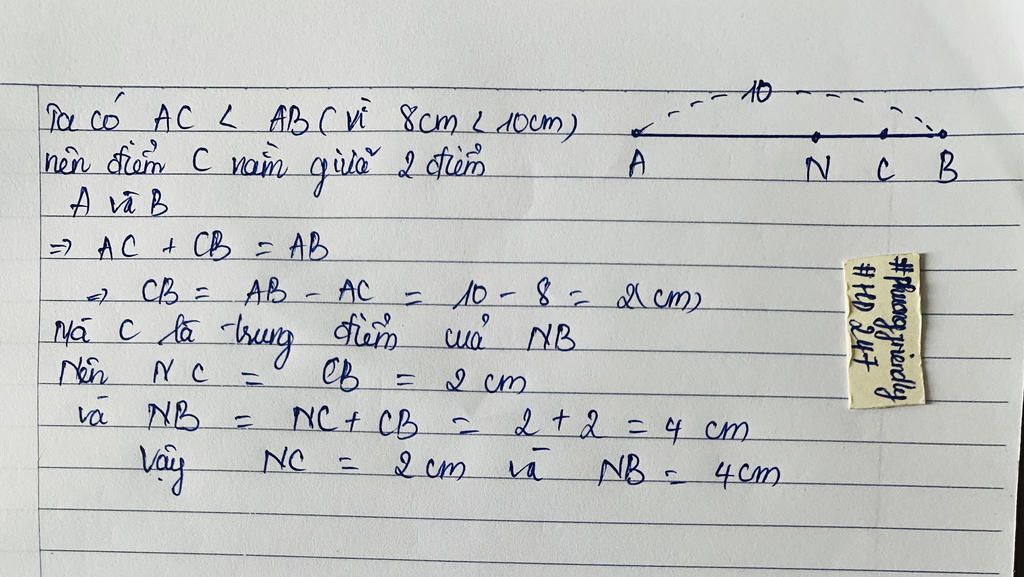 Ta có AC < AB (vì 8cm < 10cm)
nên điểm C nằm giữa 2 điểm
A và B
=> AC + CB = AB
=> CB = AB - AC = 10 - 8 = 2(cm)
Mà C là trung điểm của NB
Nên NC = CB = 2 cm
và NB = NC + CB = 2 + 2 = 4 cm
Vậy NC = 2 cm và NB = 4cm
10
A N C B
#phuongfriendly
#HD 247